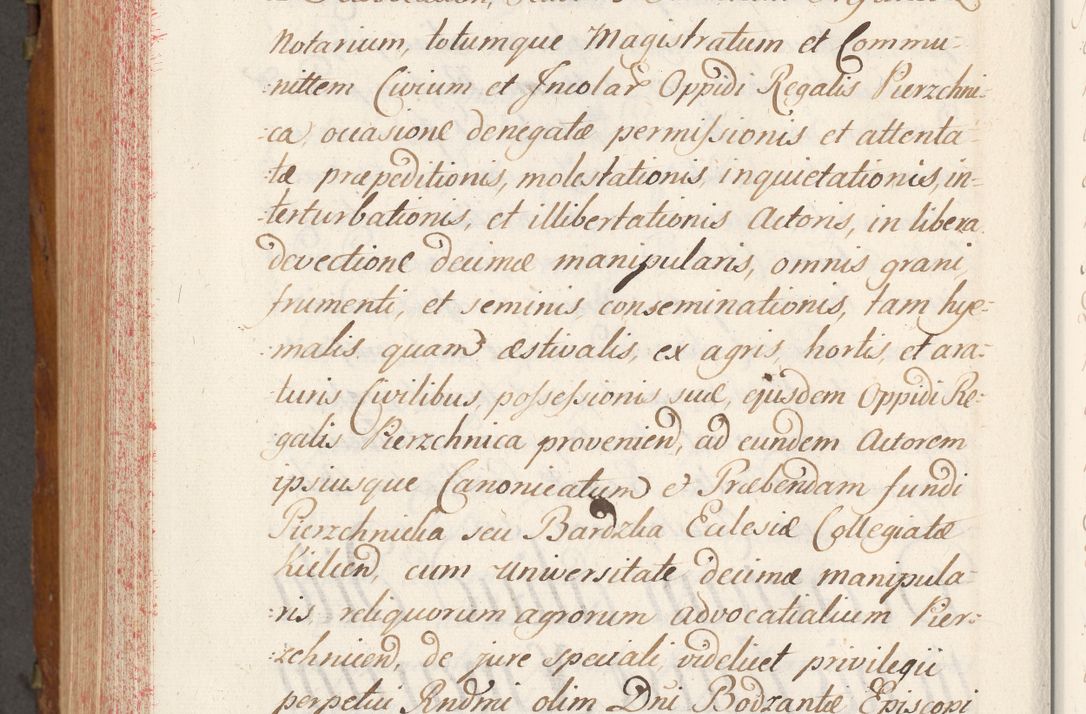 Notarium, totumque Magistratum et Commu-
nittem Civium et Incolar Oppidi Regalis Pierzchni-
ca, occasione denegatæ permissionis et attenta-
tæ præpeditionis, molestationis, inquietationis, in-
terturbationis, et illibertationis Actoris, in libera
devectione decimæ manipularis, omnis grani,
frumenti, et seminis conseminationis, tam hye-
malis, quam æstivalis, ex agris, hortis, et ara-
turis Civilibus, possessionis suæ, ejusdem Oppidi Re-
galis Pierzchnica provenien, ad eundem Actorem
ipsiusque Canonicatum et Præbendam fundi
Pierzchnicka seu Bardzka Ecclesiæ Collegiatæ
Kielcien, cum universitate decimæ manipula-
ris, reliquorum agrorum advocatialium Pier-
zchnicen, de jure speciali, videlicet privilegii
perpetui Rndmi olim Dni Bodzantæ Episcopi